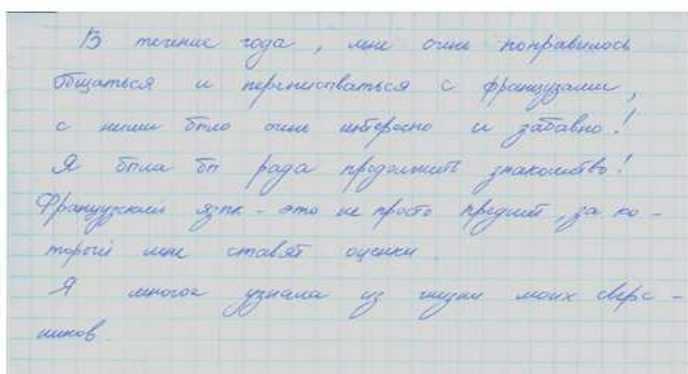 В течение года, мне очень понравилось
общаться и переписываться с французами,
с ними было очень интересно и забавно!
Я была бы рада продолжить знакомство!
Французский язык - это не просто предмет, за ко-
торый мне ставят оценки
Я многое узнала из жизни моих сверс-
ников.